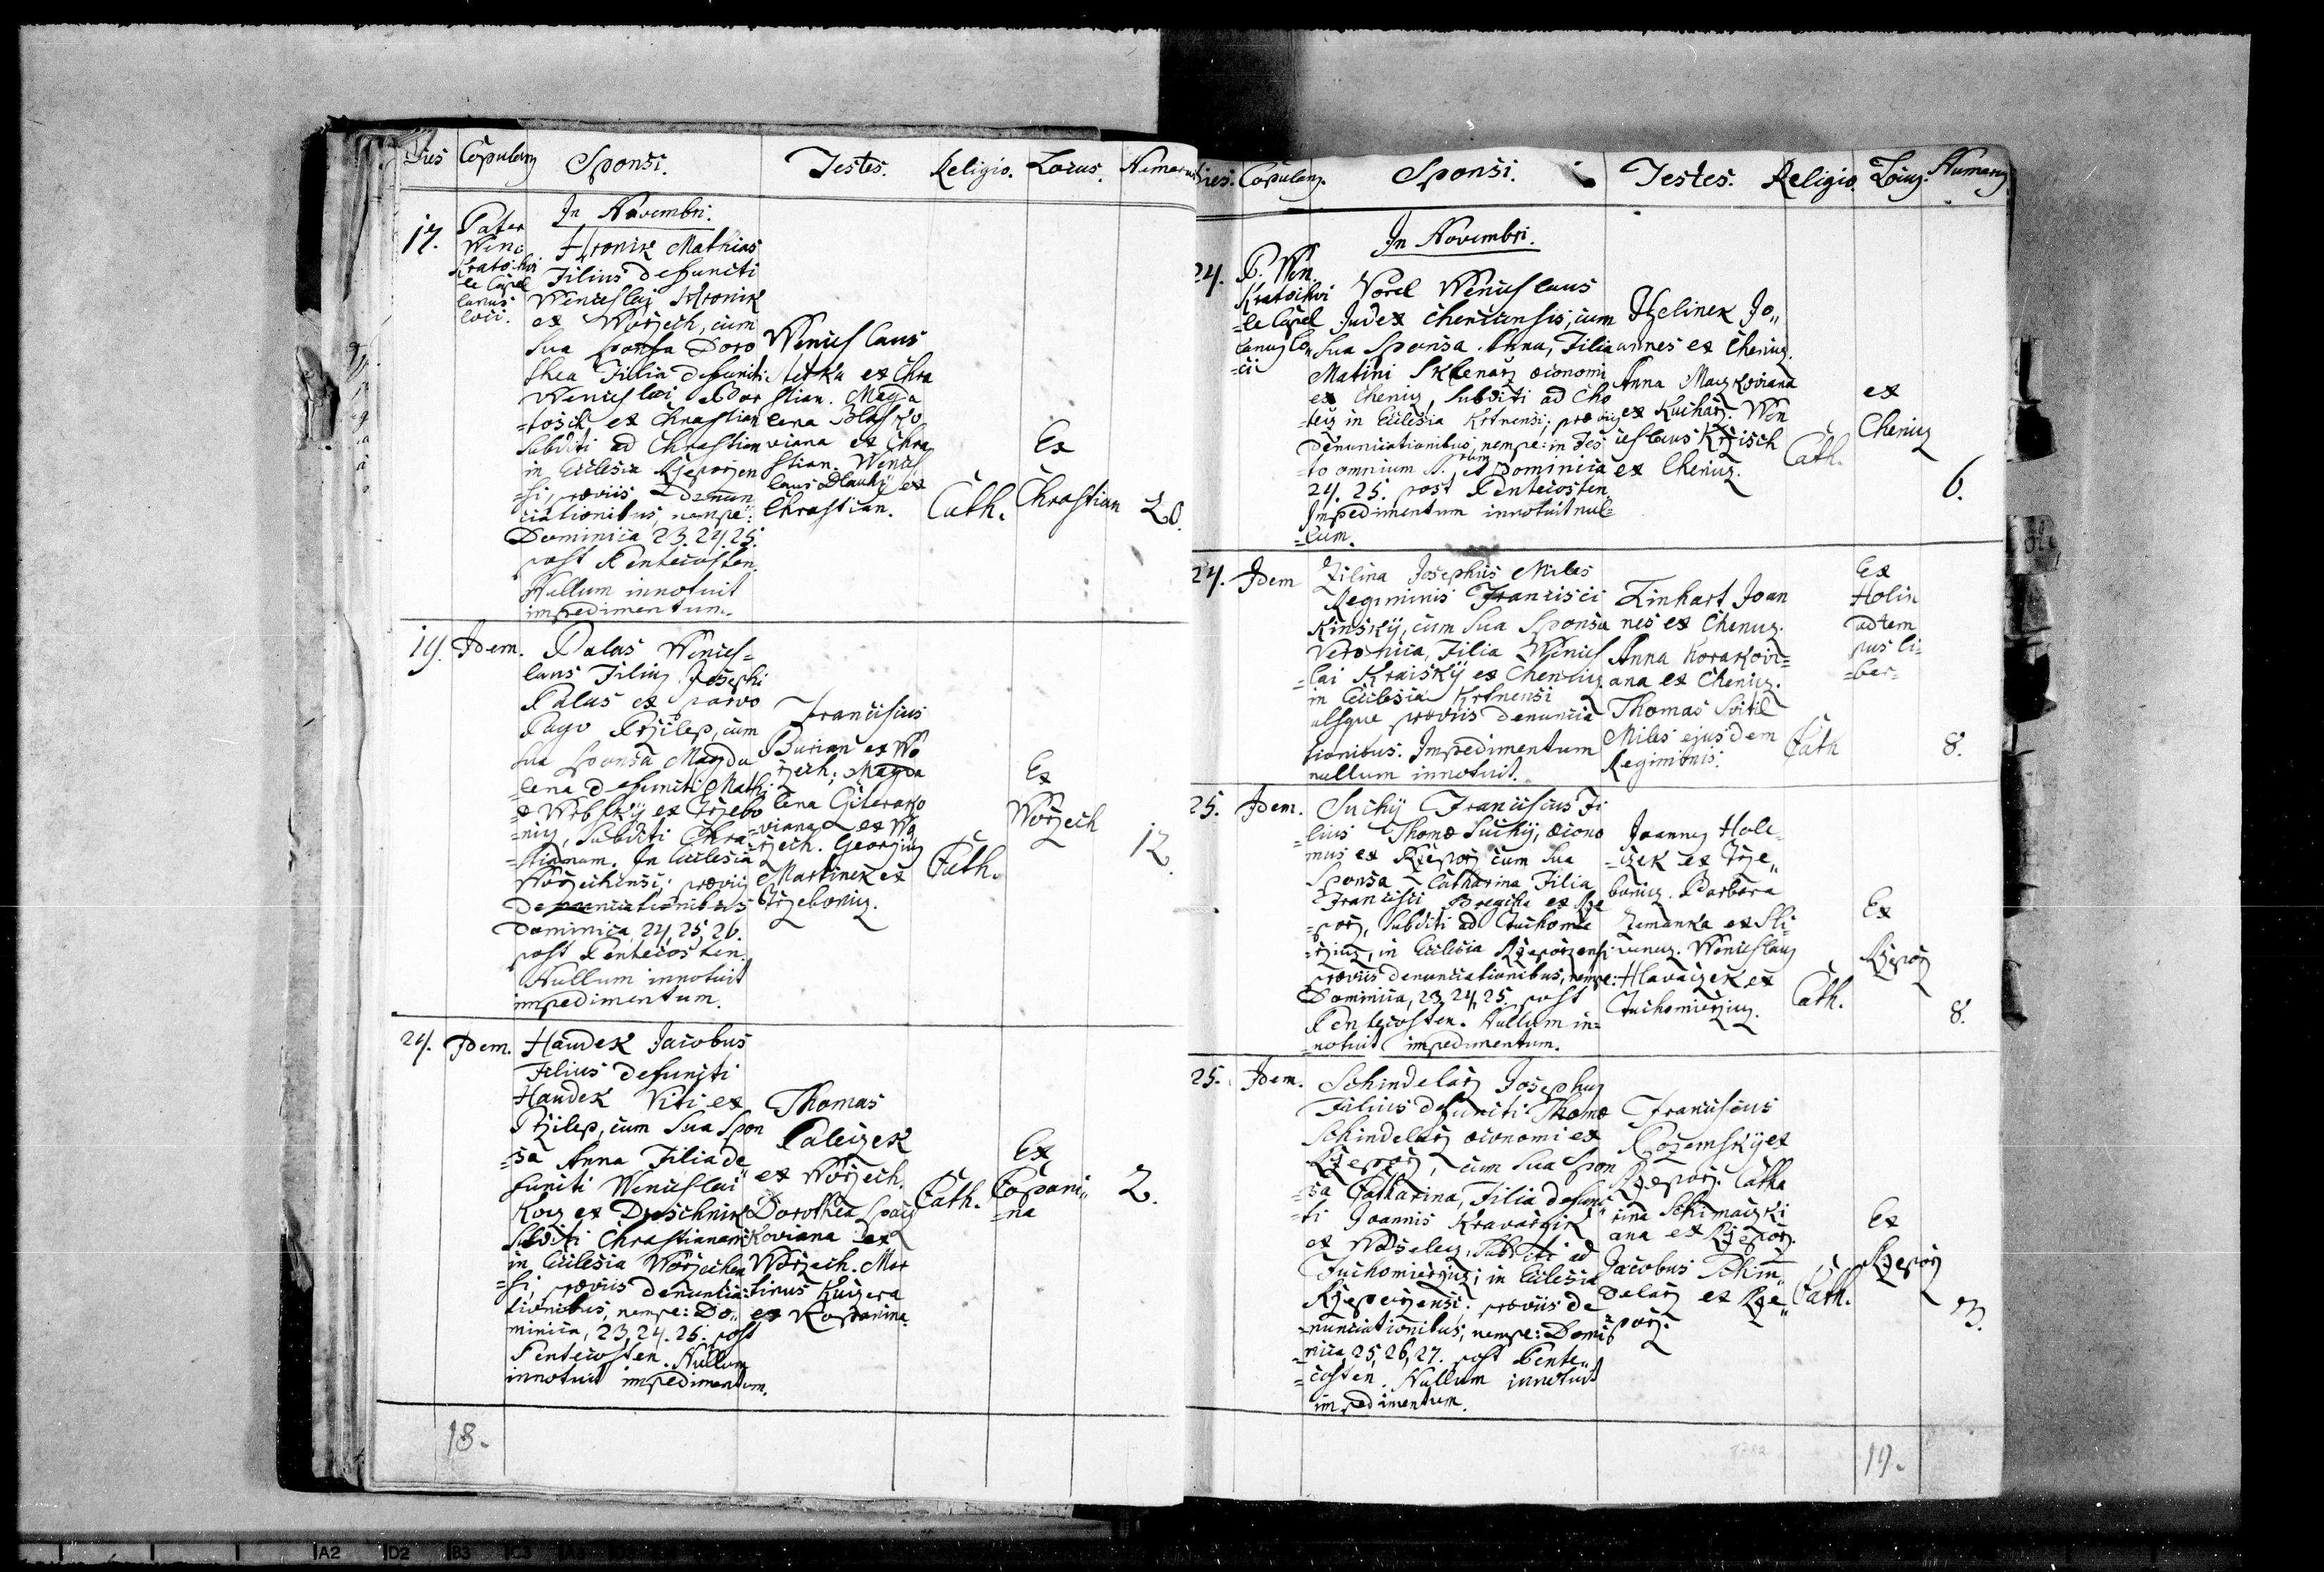 Dies Copulans Sponsi. Testes. Religio. Locus. Numerus
In Novembri.
17. Pater
Wenc
Kratochvi
le Capel
lanus
loci.
Hronik Mathias
Filius defuncti
Wenceslaj Hronik
ex Worzech, cum
Sua Sponsa Doro
thea Filia defuncti
Wenceslai
tosch, ex Chrastian
Subditi ad Chrastian
in Ecclesia Rzeporyen
=si, praeviis denun
ciationibus, nempe:
Dominica 23. 24. 25.
post Pentecosten.
Nullum innotuit
impedimentum.
Wenceslaus
ex Chra
stian. Magda
lena Blasko
viana ex Chra
stian. Wences
laus Dlauhj ex
Chrastian.
Cath.
Ex
Chrastian
20.
19. Idem.
Palas Wences=
laus Filius Josephi
Palas ex parvo
Pago Przilep, cum
sua Sponsa Magda
=lena defuncti Mathi
=ae Wrbsky ex Trzebo
=nicz, Subditi Chra
=stianum. In Ecclesia
Worzechensi, praeviis
Denunciationibus
Dominica 24, 25, 26.
post Pentecosten.
Nullum innotuit
impedimentum.
Franciscus
Burian ex Wo
rzech; Magda
lena
=viana ex Wo
rzech. Georgius
Martinek ex
Trzebonicz.
Cath.
Ex
Worzech
12.
24. Idem.
Haudek Jacobus
Filius defuncti
Haudek Viti ex
Przilep, cum Sua Spon
=sa Anna Filia de
functi Wenceslai
Kocz ex Duschnik
Subditi Chrastianam
in Ecclesia Worzechen
=si, praeviis denuncia=
tionibus, nempe: Do„
minica, 23, 24. 25. post
Pentecosten. Nullum
innotuit impedimentum.
Thomas
Paleczek
ex Worzech.
Dorothea Spacz
Koviana ex
Worzech. Mar
tinus Kuczera
ex Kopanina.
Cath.
Ex
Copani„
=na
2.
18.
Dies. Copulans. Sponsi. Testes. Religio. Locus. Numerus
In Novembri.
24. P. Wen.
Kratochvi
=le Capel
lanus lo„
=ci
Vorel Wenceslaus
Judex Chenicensis, cum
Sua Sponsa Anna, Filia
Matini Sklenarz oeconomi
ex Chenicz, Subditi ad Cho
tecz in Ecclesia Krtnensi; praeviis
Denunciationibus, nempe: in Fes
=to omnium S.rum, et Dominica
24. 25. post Pentecosten.
Impedimentum innotuit nul=
=lum.
Hzelinek Jo„
annes ex Chenicz.
Anna Maczkoviana
ex Kucharz. Wen
ceslaus Krzisch
ex Chenicz.
Cath.
ex
Chenicz
6.
24. Idem
Zilina Josephus Miles
Regiminis Francisci
Kinskij, cum Sua Sponsa
Veronica, Filia Wences
=lai Kraiskij ex Chenicz.
in Ecclesia Krtnensi
absque praeviis denuncia
tionibus. Impedimentum
nullum innotuit.
Linhart Joan
nes ex Chenicz.
Anna Korakovi=
ana ex Chenicz.
Thomas Svitil
Miles ejusdem
Regiminis.
Cath
Ex
Holin
ad tem
pus li=
=ber=
8.
25. Idem.
Suchij Franciscus Fi
lius Thomae Suchij, oecono
mus ex Rzeporz cum Sua
Sponsa Catharina Filia
Francisci Bregcha ex Rze
=porz, Subditi ad Tuchomie
=rzicz, in Ecclesia Rzeporzensi
praeviis denunciationibus, nempe:
Dominica, 23, 24, 25. post
Pentecosten. Nullum in=
=notuit impedimentum.
Joannes Hole
=czek ex Trze„
bonicz. Barbara
Zemanka ex Sli
venecz. Wenceslaus
Hlavaczek ex
Tuchomierzicz.
Cath.
Ex
Rzeporz
8.
25. Idem.
Schindelarz Josephus
Filius defuncti Thomae
Schindelarz oeconomi ex
Rzeporz, cum Sua Spon
=sa Catharina, Filia defunc
=ti Joannis Kravarzik
ex Woselecz, Subditi ad
Tuchomierzicz; in Ecclesia
Rzeporzensi. praeviis de
=nunciationibus, nempe: Domi
=nica 25, 26, 27. post Pente„
=costen. Nullum innotuit
impedimentum.
Franciscus
Rozemskij ex
Rzeporz. Catha
rina Schimaczki
ana ex Rzeporz.
Jacobus Schin„
delarz ex Rze„
=porz.
Cath.
Ex
Rzeporz
13.
1782
19.